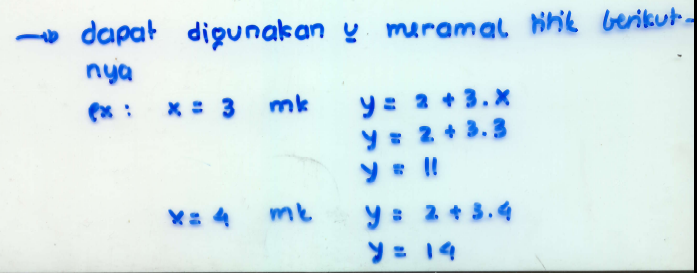 → dapat digunakan u meramal titik berikut-
nya
ex : x = 3 mk y = 2 + 3.x
y = 2 + 3.3
y = 11
x = 4 mk y = 2 + 3.4
y = 14